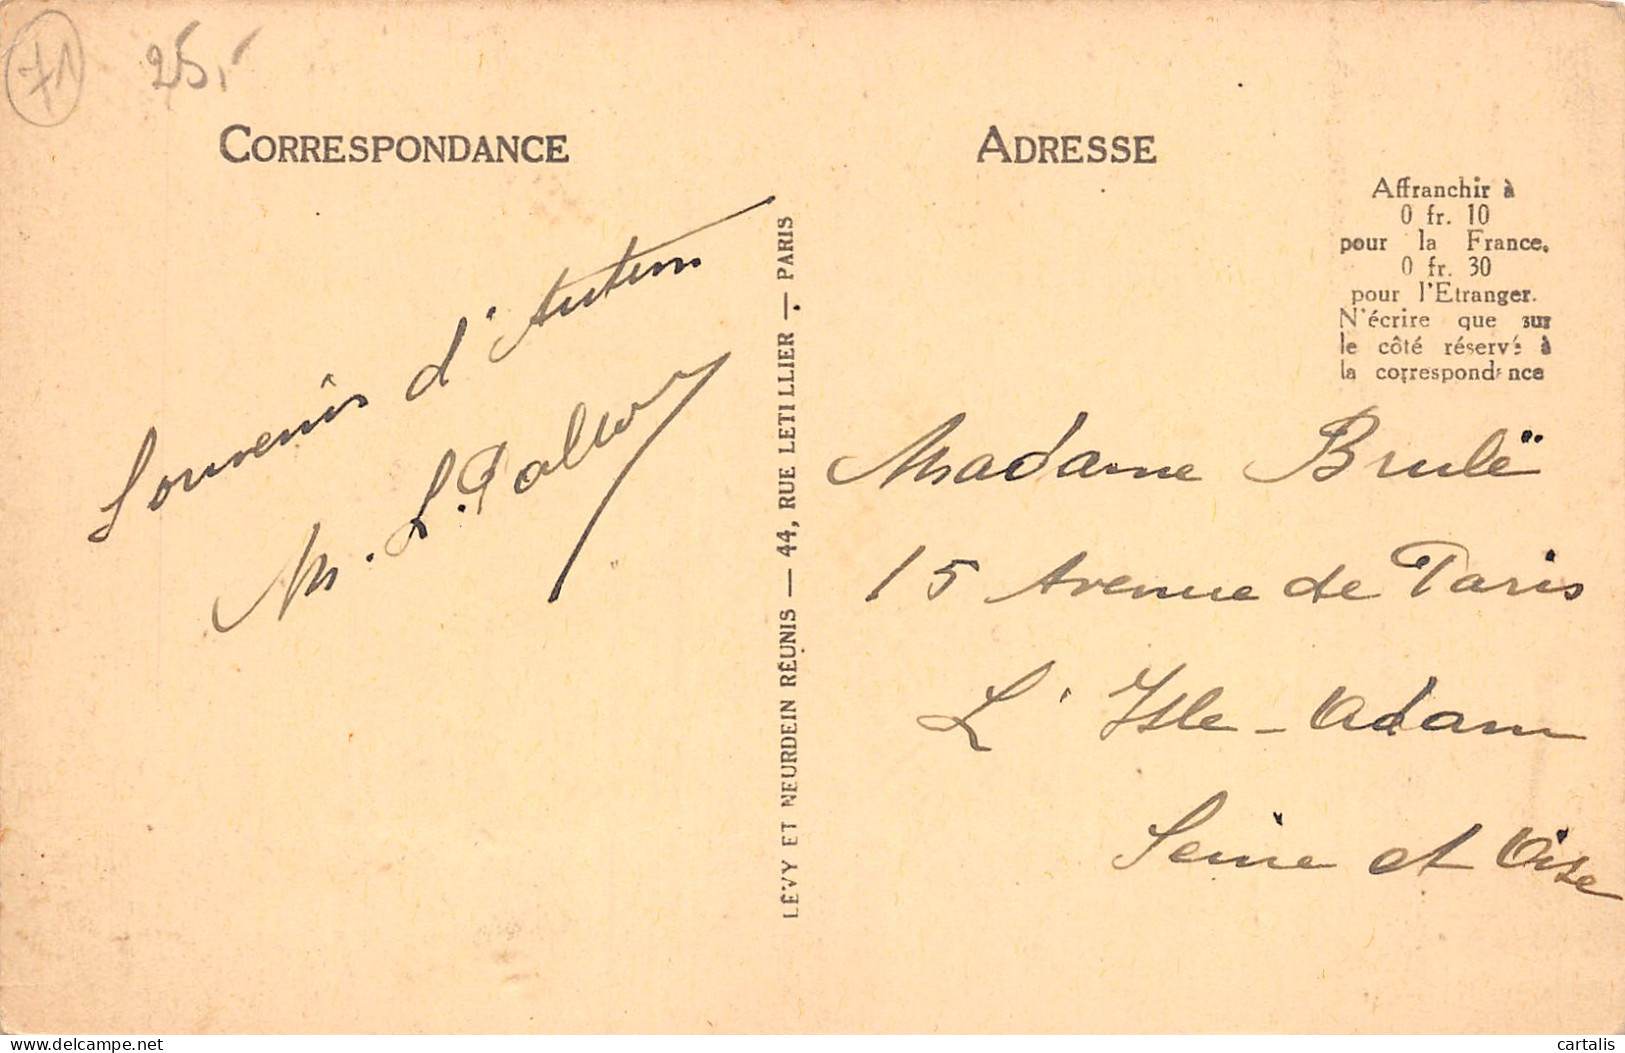 71
25,-
CORRESPONDANCE
ADRESSE
Affranchir à
0 fr. 10
pour la France.
0 fr. 30
pour l'Etranger.
N'écrire que sur
le côté réservé à
la correspondance
Souvenirs d'Autun
M. L.
LÉVY ET NEURDEIN RÉUNIS — 44, RUE LETILLIER — PARIS
Madame Brulë
15 Avenue de Paris
L'Isle-Adam
Seine et Oise
cartalis